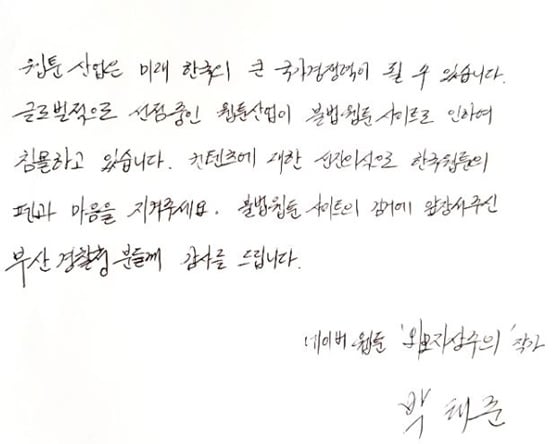 웹툰 산업은 미래 한국의 큰 국가경쟁력이 될 수 있습니다.
글로벌적으로 선점중인 웹툰산업이 불법웹툰 사이트로 인하여
침몰하고 있습니다. 컨텐츠에 대한 선진의식으로 한국웹툰의
펜과 마음을 지켜주세요. 불법웹툰 사이트의 검거에 앞장서주신
부산경찰청분들께 감사를 드립니다.
네이버 웹툰 '외모지상주의' 작가
박태준